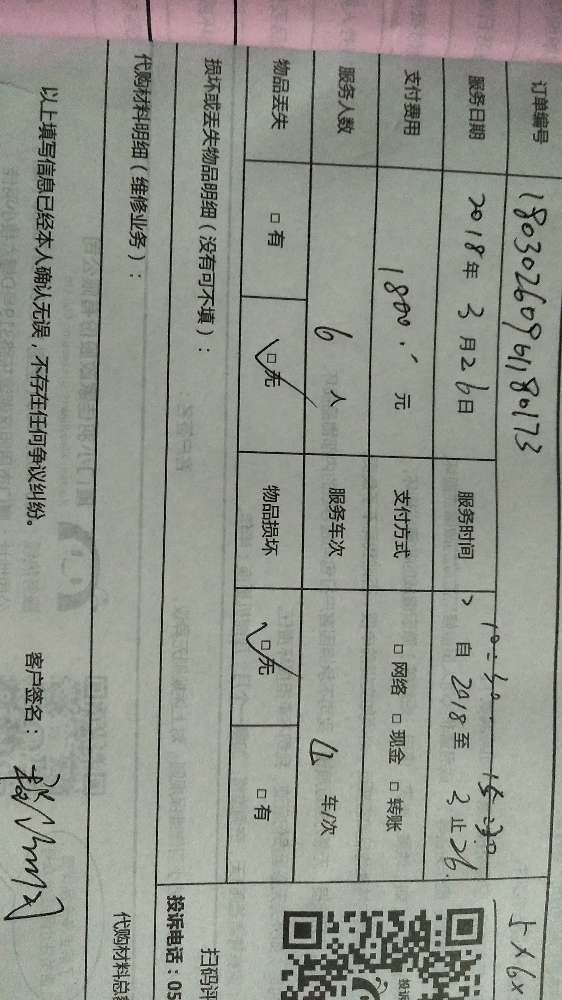 订单编号 18030260961180173
服务日期 2018年3月26日 服务时间 10:30 15:30 自 2018 至 3 止 26.
支付费用 1800. 元 支付方式 □ 网络 □ 现金 □ 转账
服务人数 6 人 服务车次 车/次
物品丢失 □ 有 □ 无 物品损坏 □ 无 □ 有
损坏或丢失物品明细（没有可不填）：
代购材料明细（维修业务）：
以上填写信息已经本人确认无误，不存在任何争议纠纷。 客户签名：
5×6×
扫码评
投诉电话：05
代购材料总